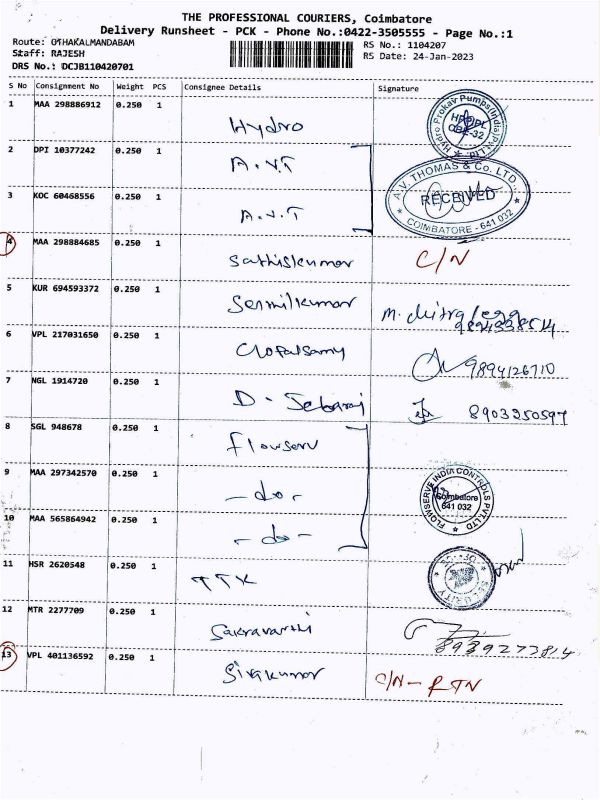 THE PROFESSIONAL COURIERS, Coimbatore
Delivery Runsheet - PCK - Phone No.:0422-3505555 - Page No.:1
Route: OTHAKALMANDABAM RS No.: 1104207
Staff: RAJESH RS Date: 24-Jan-2023
DRS No.: DCJB110420701
S No Consignment No Weight PCS Consignee Details Signature
1 MAA 298886912 0.250 1 Hydro
Hydro Prokav Pumps(India)Pvt.Ltd.
2 DPI 10377242 0.250 1 A.V.T
A.V. THOMAS & Co. LTD.,
RECEIVED
COIMBATORE - 641 032
3 KOC 60468556 0.250 1 A.V.T
4 MAA 298884685 0.250 1 Sathiskumar C/N
5 KUR 694593372 0.250 1 Senthilkumar
6 VPL 217031650 0.250 1 9894126710
7 NGL 1914720 0.250 1 8903250597
8 SGL 948678 0.250 1 flowserv
9 MAA 297342570 0.250 1 -do-
FLOWSERVE INDIA CONTROLS PVT. LTD
Coimbatore
641 032
10 MAA 565864942 0.250 1 -do-
11 HSR 2620548 0.250 1 TTK
12 MTR 2277709 0.250 1 Sakravarthi 8939273814
13 VPL 401136592 0.250 1 Sivakumar C/N-RTN